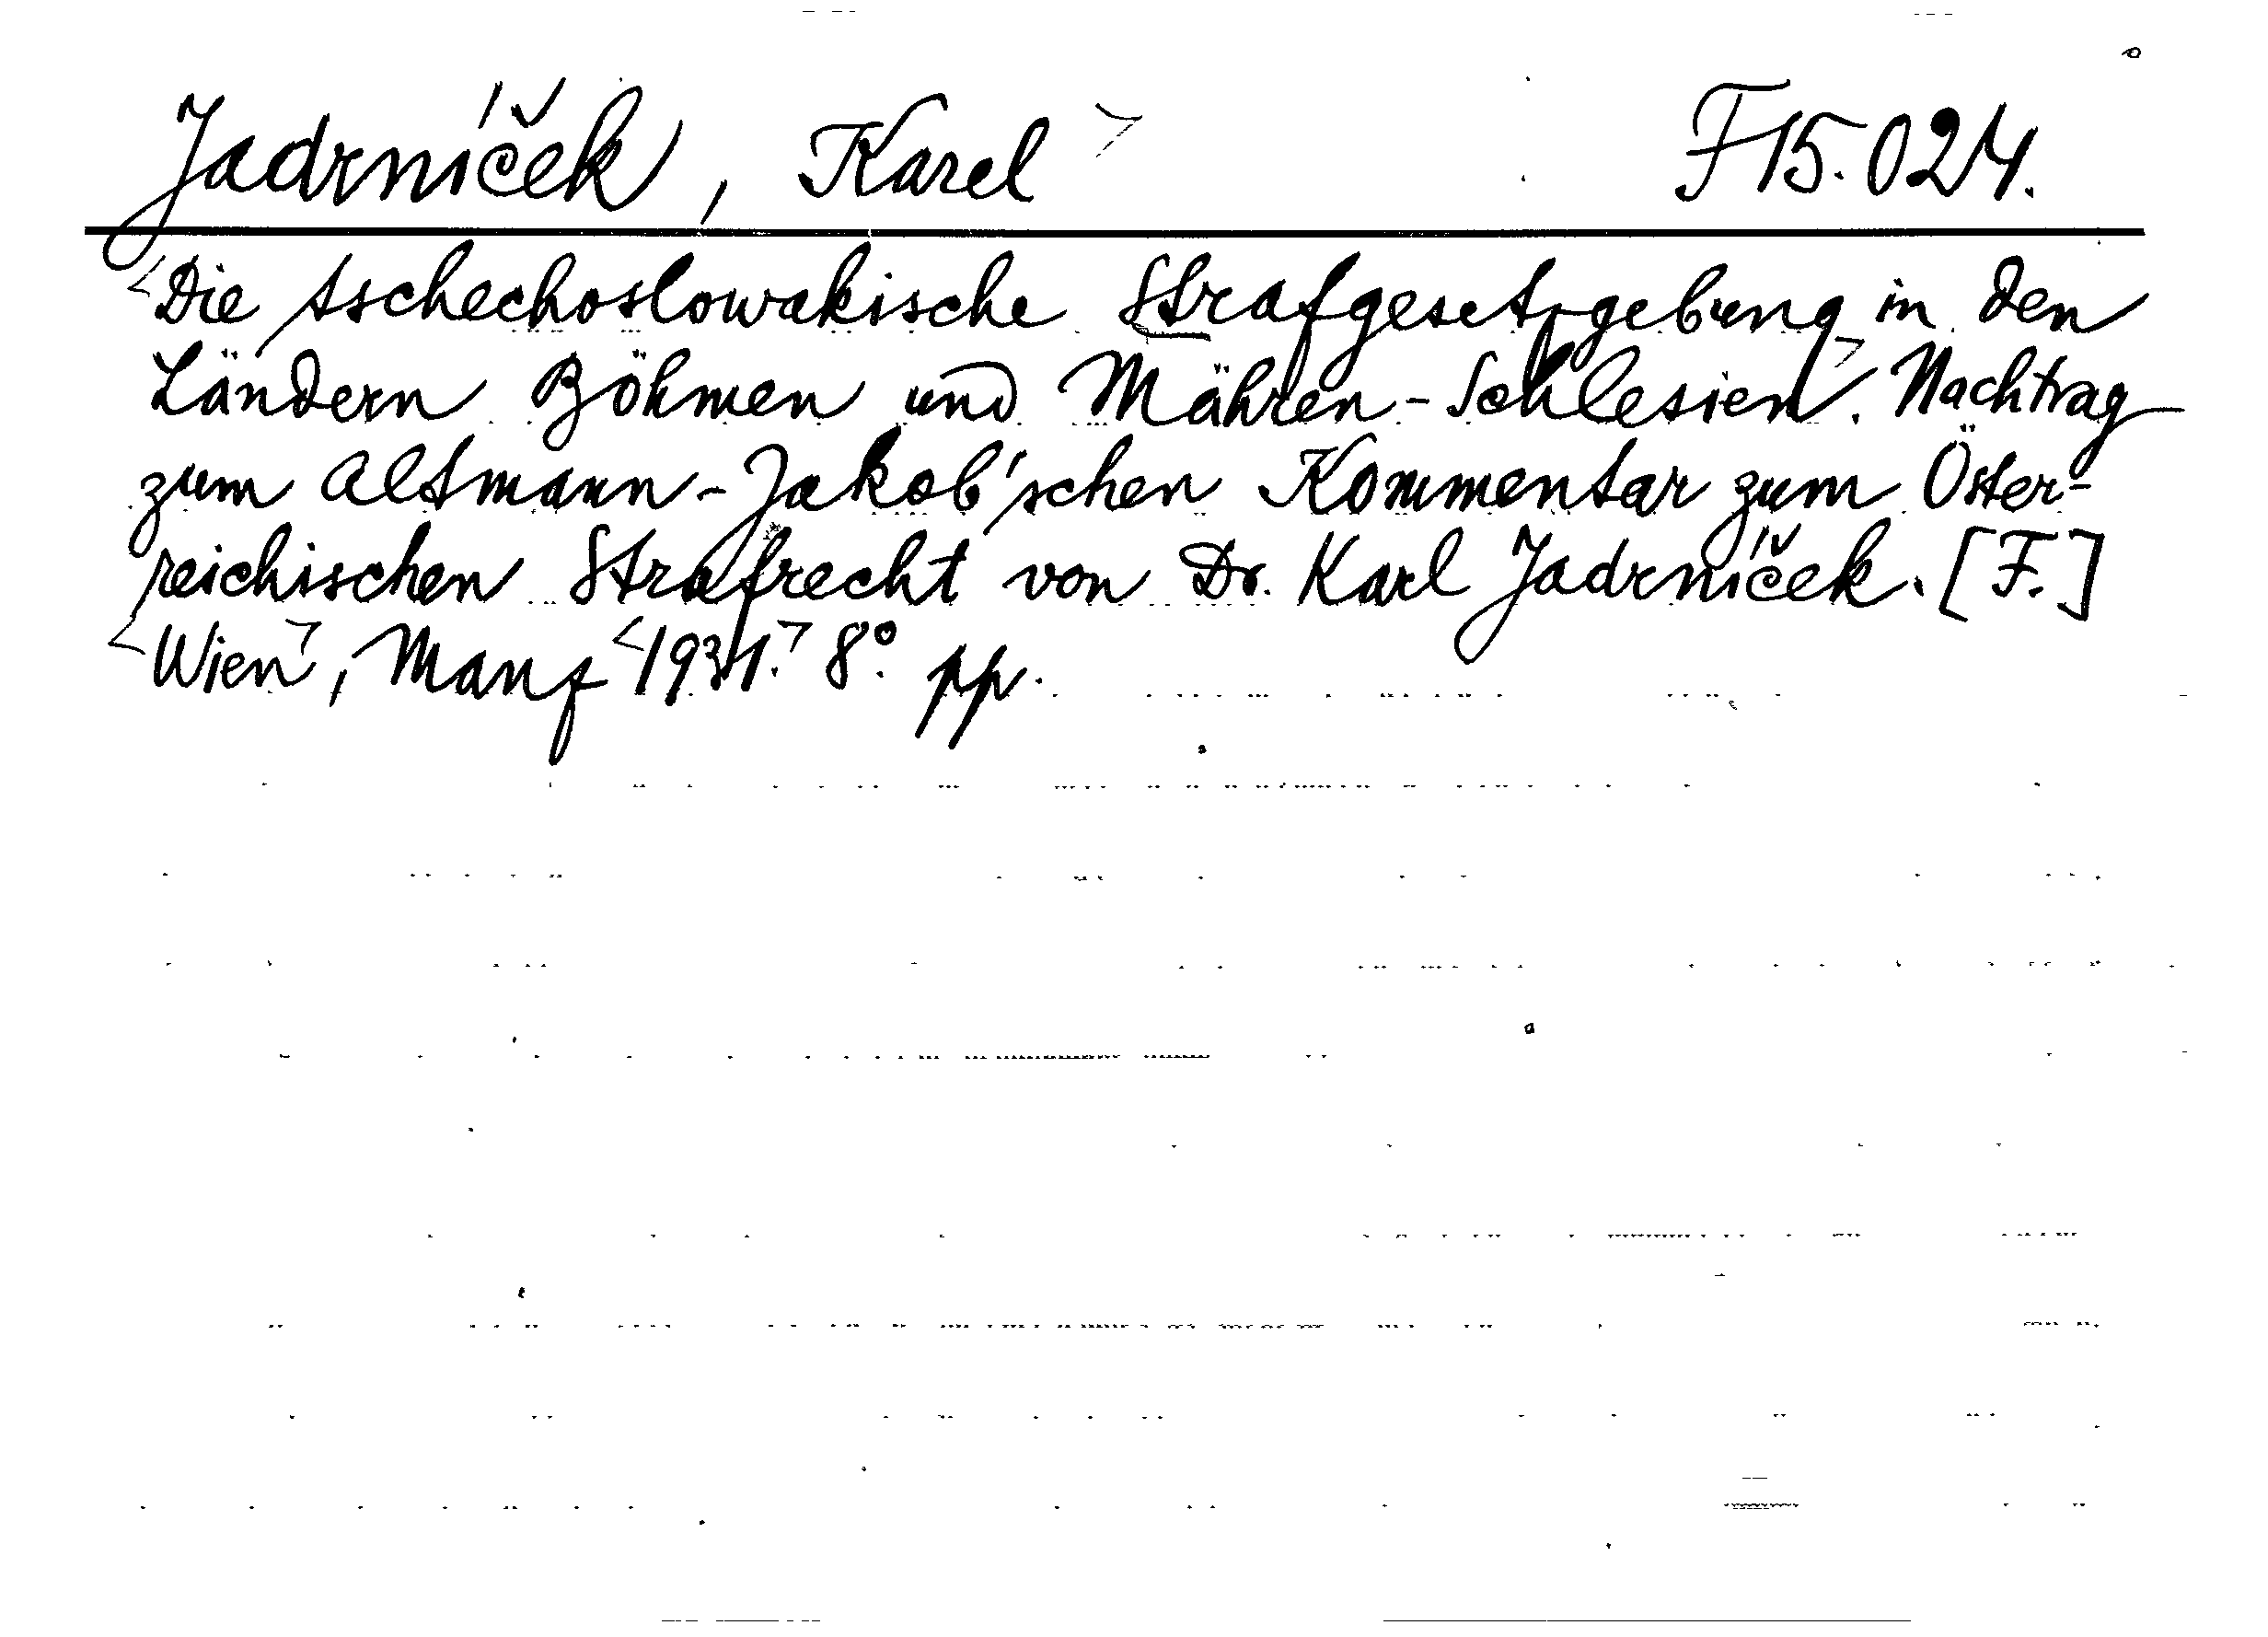 Jadrníček, Karel F 15.024.
Die tschechoslowakische Strafgesetzgebung in den
Ländern Böhmen und Mähren-Schlesien. Nachtrag
zum Altmann-Jakob'schen Kommentar zum Öster-
reichischen Strafrecht von Dr. Karl Jadrníček. [F.]
Wien, Manz 1931. 8° pp.